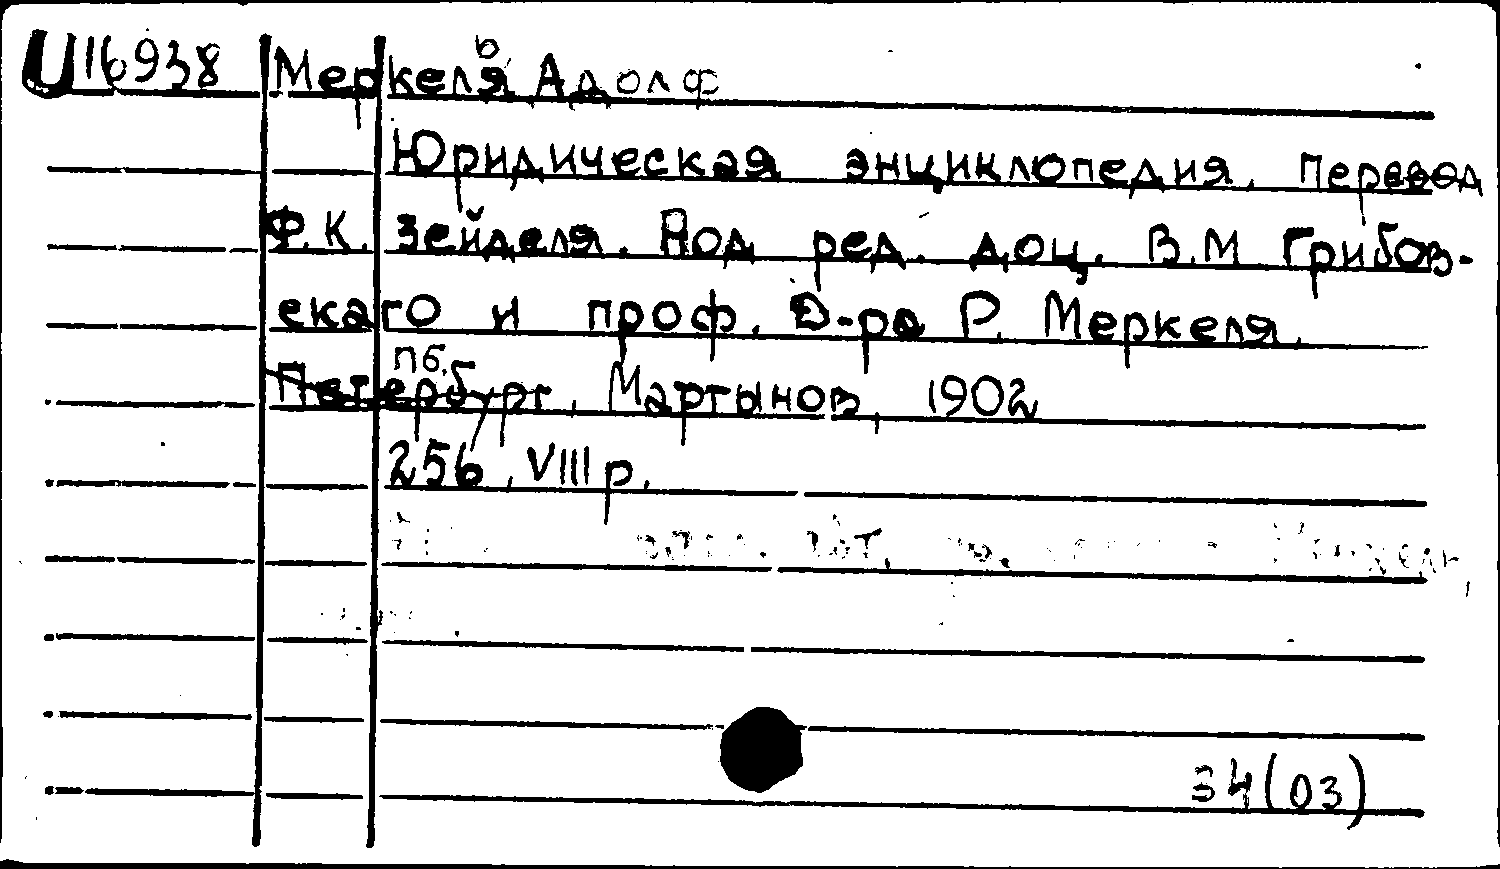 U 16938 Меркель Адолф
Юридическая энциклопедия. Перевод
Ф.К. Зейделя. Под ред. доц. В.М Грибов-
скаго и проф. Д-ра Р. Меркеля.
Пб.
Петербург, Мартынов, 1902
256, VIII р.
34(03)